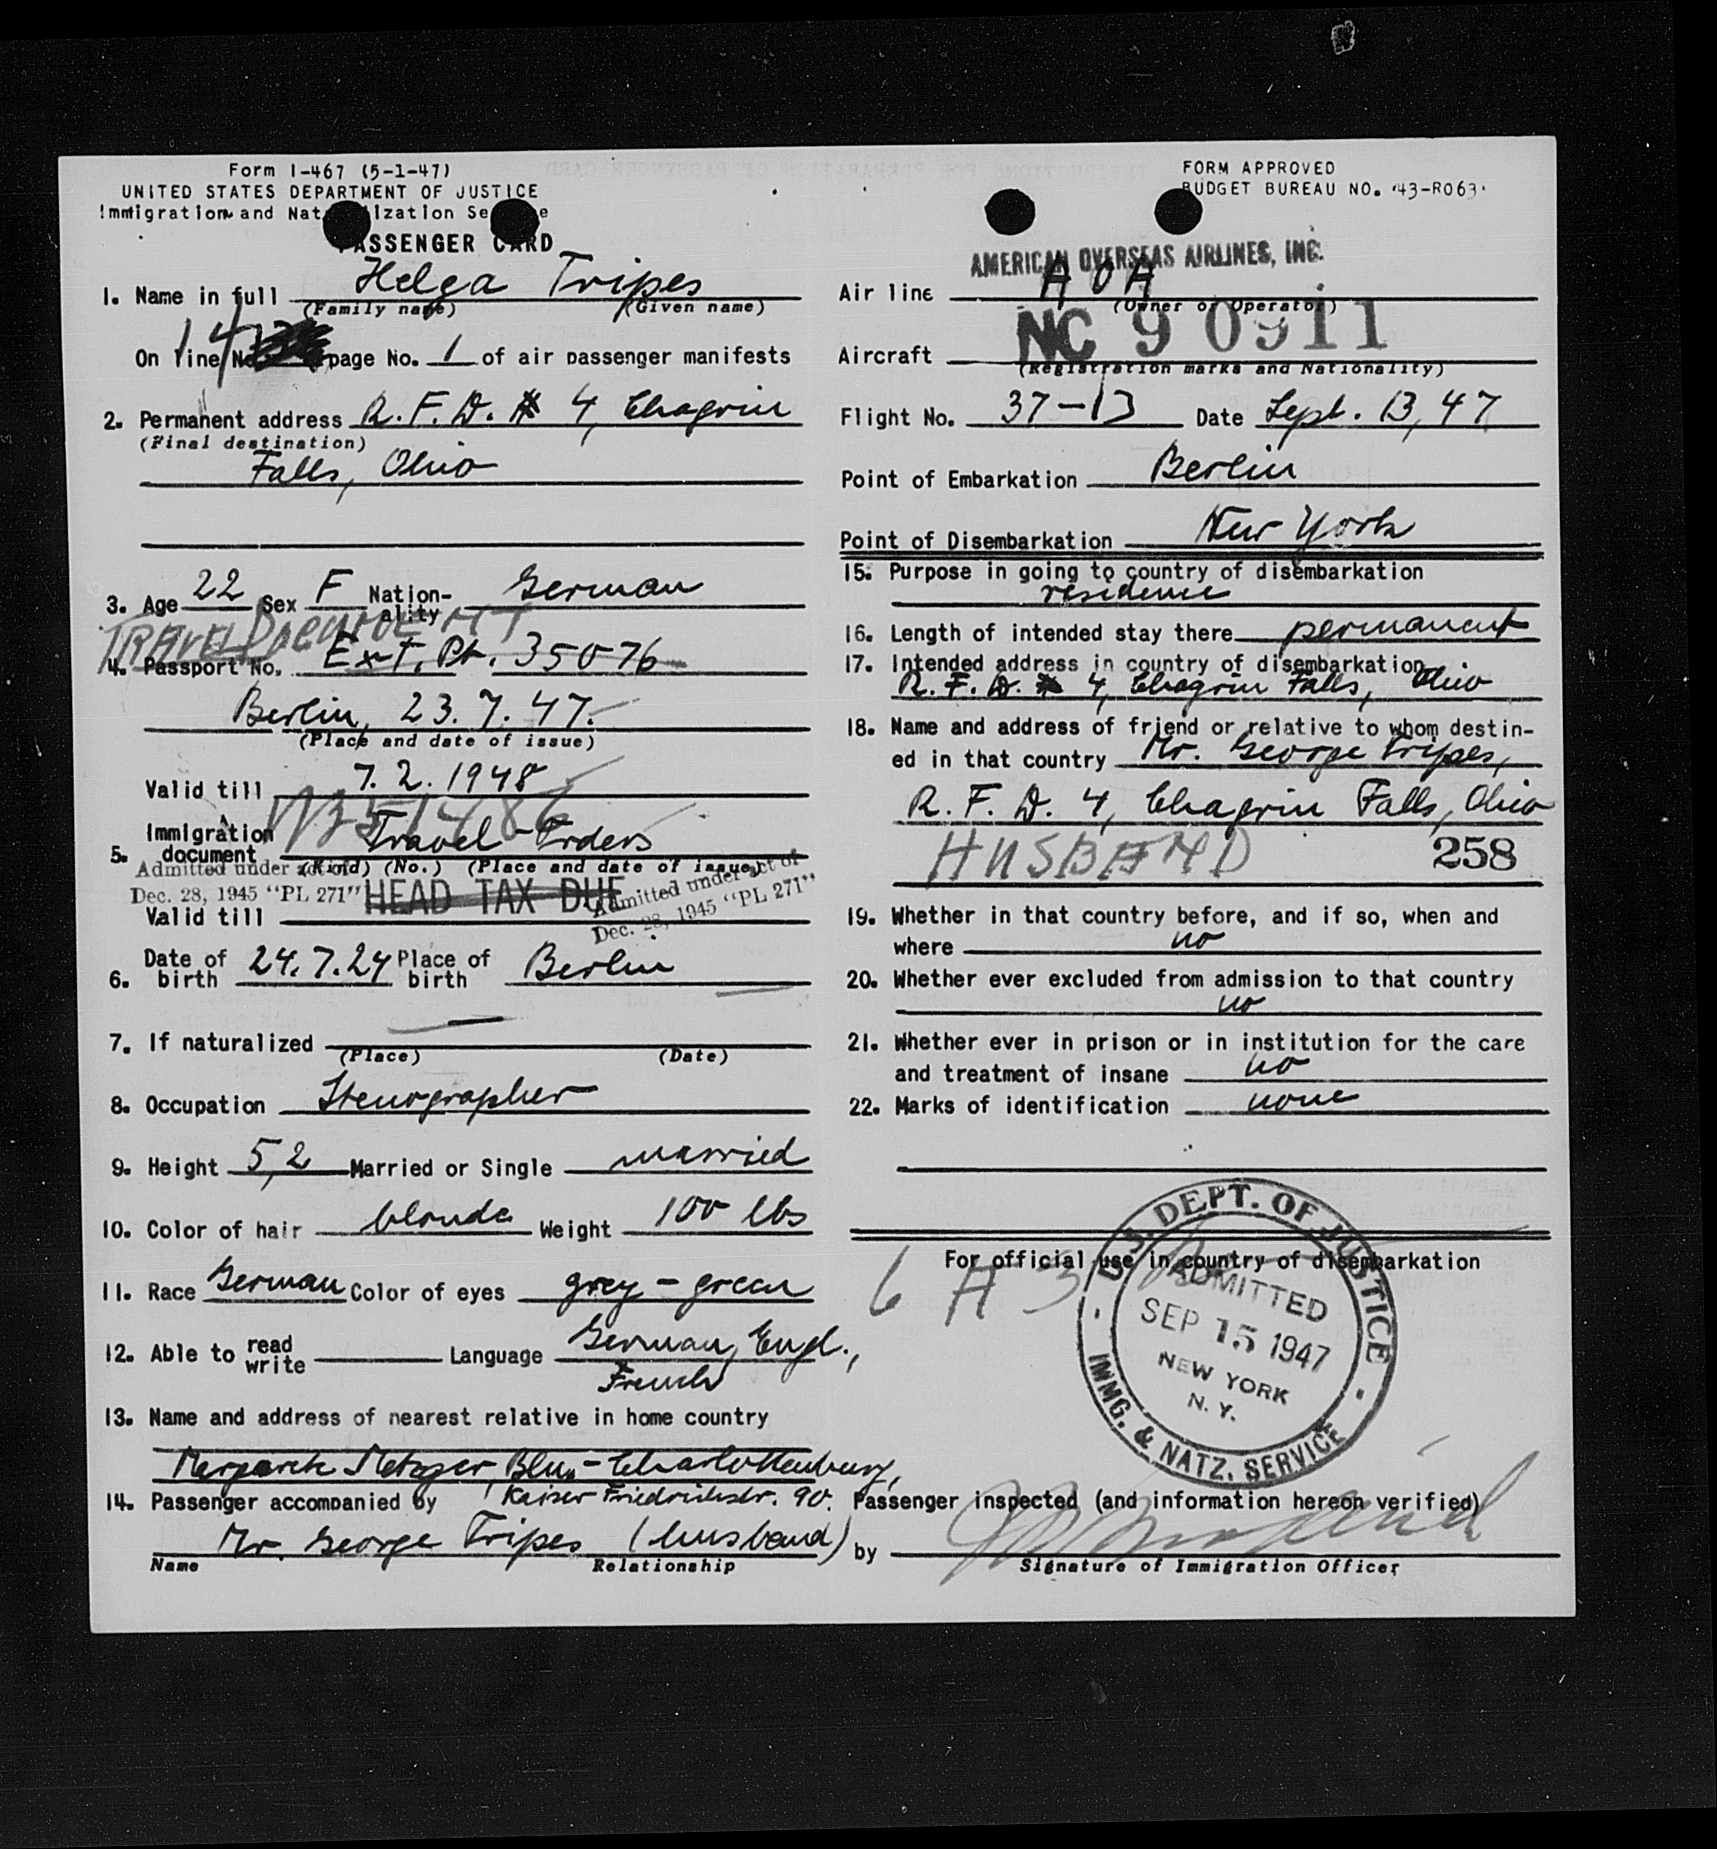 Form I-467 (5-1-47)
UNITED STATES DEPARTMENT OF JUSTICE
Immigration and Nat lization Se e
PASSENGER CARD
1. Name in full Helga Tripes
(Family name) (Given name)
14
On line No. page No. 1 of air passenger manifests
2. Permanent address R. F. D. # 4, Chagrin
(Final destination)
Falls, Ohio
3. Age 22 Sex F Nation-ality German
TRAVEL DOCUMENT
4. Passport No. Ext. Pt. 35076
Berlin, 23.7.47.
(Place and date of issue)
Valid till 7.2.1948
5. Immigration document Travel-Orders
(Kind) (No.) (Place and date of issue)
Admitted under act of
Dec. 28, 1945 "PL 271"
HEAD TAX DUE
Admitted under act of
Dec. 28, 1945 "PL 271"
Valid till
6. Date of birth 24.7.24 Place of birth Berlin
7. If naturalized —
(Place) (Date)
8. Occupation Stenographer
9. Height 5,2 Married or Single married
10. Color of hair blonde Weight 100 lbs
11. Race German Color of eyes grey - green
12. Able to read write Language German, Engl.,
French
13. Name and address of nearest relative in home country
Margarete Metzger, Bln.-Charlottenburg,
Kaiser Friedrichstr. 90.
14. Passenger accompanied by
Mr. George Tripes (husband)
Name Relationship
FORM APPROVED
BUDGET BUREAU NO. 43-R063.
AMERICAN OVERSEAS AIRLINES, INC.
Air line A O A
(Owner or Operator)
Aircraft NC 90911
(Registration marks and Nationality)
Flight No. 37-13 Date Sept. 13, 47
Point of Embarkation Berlin
Point of Disembarkation New York
15. Purpose in going to country of disembarkation
residence
16. Length of intended stay there permanent
17. Intended address in country of disembarkation
R. F. D. # 4, Chagrin Falls, Ohio
18. Name and address of friend or relative to whom destin-
ed in that country Mr. George Tripes,
R. F. D. 4, Chagrin Falls, Ohio
HUSBAND 258
19. Whether in that country before, and if so, when and
where no
20. Whether ever excluded from admission to that country
no
21. Whether ever in prison or in institution for the care
and treatment of insane no
22. Marks of identification none
For official use in country of disembarkation
6 A 3
U.S. DEPT. OF JUSTICE
ADMITTED
SEP 15 1947
NEW YORK
N. Y.
IMMG. & NATZ. SERVICE
Passenger inspected (and information hereon verified)
by
Signature of Immigration Officer